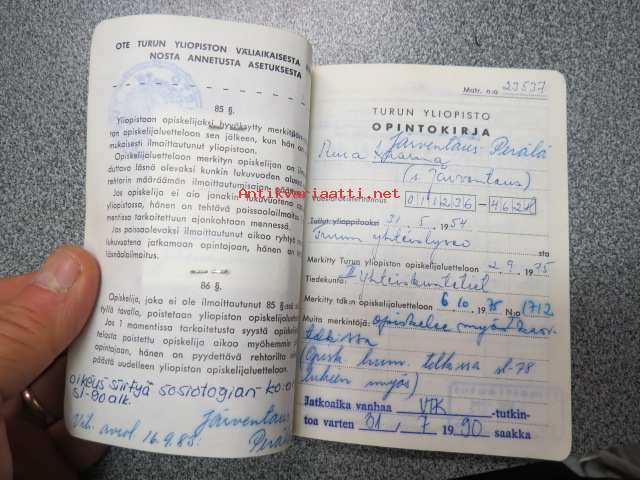 OTE TURUN YLIOPISTON VÄLIAIKAISESTA
NOSTA ANNETUSTA ASETUKSESTA
85 §.
Yliopistoon opiskelijaksi hyväksytty merkitään
ton opiskelijaluetteloon sen jälkeen, kun hän on
mukaisesti ilmoittautunut yliopistoon.
Opiskelijaluetteloon merkityn opiskelijan on ilmoit
duttava läsnä olevaksi kunkin lukuvuoden alussa
rehtorin määräämän ilmoittautumisajan
Jos opiskelija ei aio jonakin lukuvuotena
yliopistossa, hänen on tehtävä poissaoloilmoit
mentissa tarkoitetun ajankohtaan mennessä.
Jos poissaolevaksi ilmoittautunut aikoo ryhtyä
lukuvuotena jatkamaan opintojaan, hänen on
läsnäoloilmoitus.
86 §.
Opiskelija, joka ei ole ilmoittautunut 85 §:ssä
tyllä tavalla, poistetaan yliopiston opiskelijaluettelo
Jos 1 momentissa tarkoitetusta syystä opiskelija
telosta poistettu opiskelija aikoo myöhemmin
opintojaan, hänen on pyydettävä rehtorilta
päästä uudelleen yliopiston opiskelijaluetteloon.
oikeus siirtyä sosiologian ko:on
sl-80 alk.
Vih. aviol. 16.9.83:
Järventaus-
Perälä
Antikvariaatti.net
Matr. n:o 23537
TURUN YLIOPISTO
OPINTOKIRJA
Järventaus-Perälä
(s. Järventaus)
011236-462
Tullut ylioppilaaksi 31. 5. 1954
Turun yhteislyseo sta
Merkitty Turun yliopiston opiskelijaluetteloon 2.9. 1975
Tiedekunta: yhteiskuntatiet
Merkitty tdk:n opiskelijaluetteloon 6.10. 1975 N:o 1712
Muits merkintöjä: opiskelee myös
tdkissa
(Opisk. hum. tdkssa sl-78
lukien myös)
Jatkoaika vanhaa VTK -tutkin-
toa varten 31. 7 1990 saakka